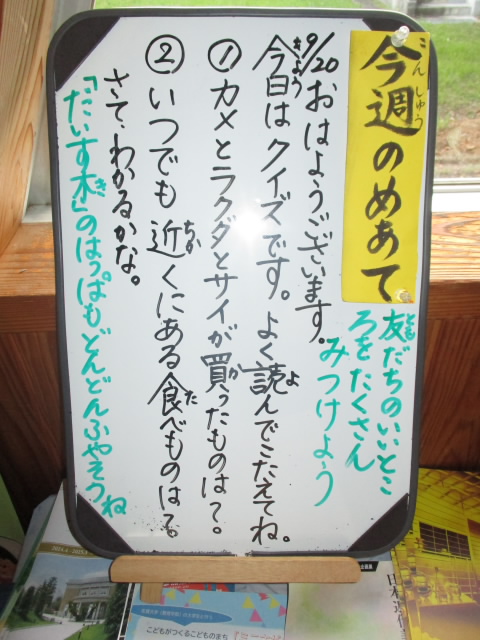 今週のめあて
こんしゅう
友だちのいいとこ
とも
ろをたくさん
みつけよう
9/20 おはようございます。
今日はクイズです。よく読んでこたえてね。
きょう
よ
①カメとラクダとサイが買ったものは?。
か
②いつでも近くにある食べものは?。
ちか
た
さて、わかるかな。
「だいす木」のはっぱもどんどんふやそうね
き
こどもがつくるこどものまち